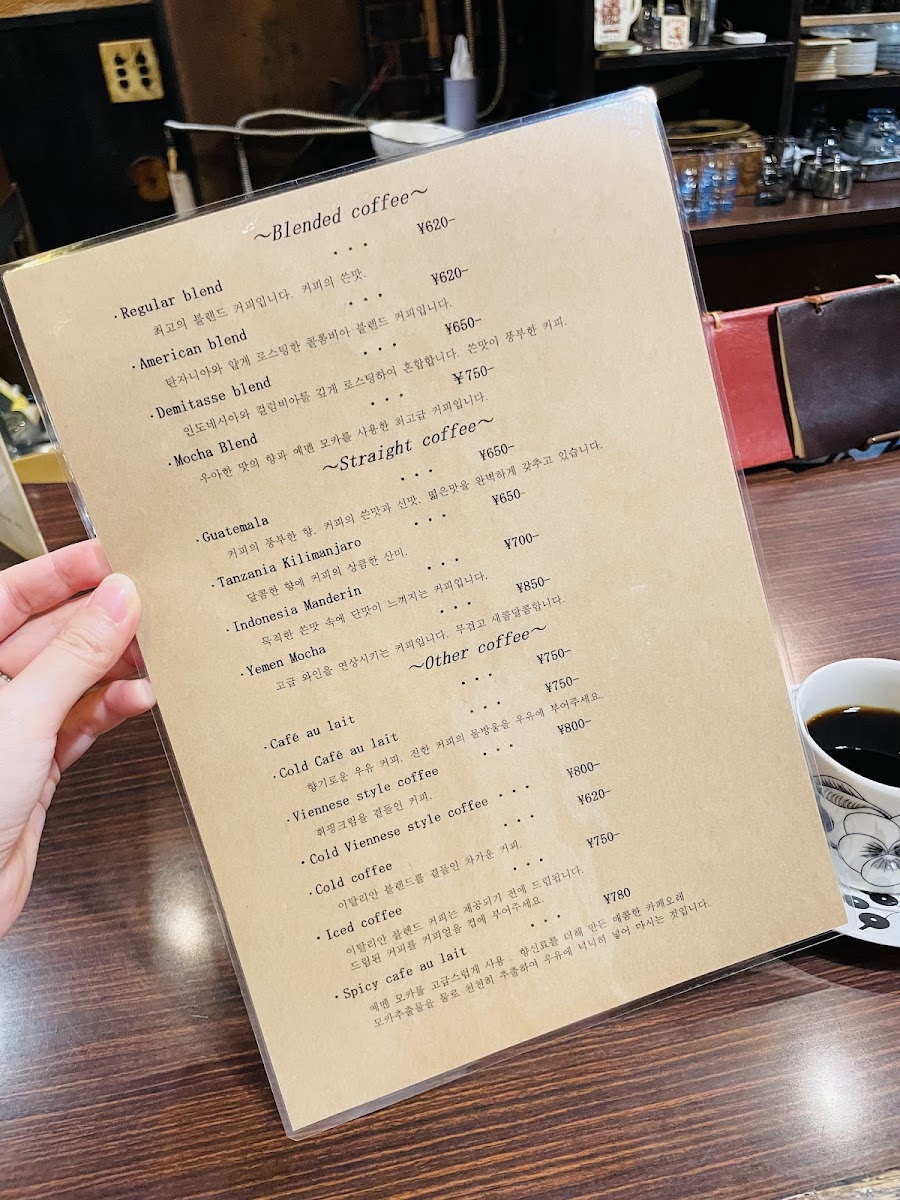 ~Blended coffee~
・Regular blend ・・・ ¥620-
최고의 블렌드 커피입니다. 커피의 쓴맛.
・American blend ・・・ ¥620-
탄자니아와 얕게 로스팅한 콜롬비아 블렌드 커피입니다.
・Demitasse blend ・・・ ¥650-
인도네시아와 컬럼비아를 깊게 로스팅하여 혼합합니다. 쓴맛이 풍부한 커피.
・Mocha Blend ・・・ ¥750-
우아한 맛의 향과 예멘 모카를 사용한 최고급 커피입니다.
~Straight coffee~
・Guatemala ・・・ ¥650-
커피의 풍부한 향, 커피의 쓴맛과 신맛, 떫은맛을 완벽하게 갖추고 있습니다.
・Tanzania Kilimanjaro ・・・ ¥650-
달콤한 향에 커피의 상큼한 산미.
・Indonesia Manderin ・・・ ¥700-
묵직한 쓴맛 속에 단맛이 느껴지는 커피입니다.
・Yemen Mocha ・・・ ¥850-
고급 와인을 연상시키는 커피입니다. 무겁고 새콤달콤합니다.
~Other coffee~
・Café au lait ・・・ ¥750-
・Cold Café au lait ・・・ ¥750-
향기로운 우유 커피. 진한 커피의 물방울을 우유에 부어주세요.
・Viennese style coffee ・・・ ¥800-
휘핑크림을 곁들인 커피.
・Cold Viennese style coffee ・・・ ¥800-
・Cold coffee ・・・ ¥620-
이탈리안 블렌드를 곁들인 차가운 커피.
・Iced coffee ・・・ ¥750-
이탈리안 블렌드 커피는 제공되기 전에 드립됩니다.
드립된 커피를 커피얼음 컵에 부어주세요.
・Spicy cafe au lait ・・・ ¥780
예멘 모카를 고급스럽게 사용 . 향신료를 더해 만든 매콤한 카페오레
모카추출물을 물로 천천히 추출하여 우유에 넉넉히 넣어 마시는 것입니다.